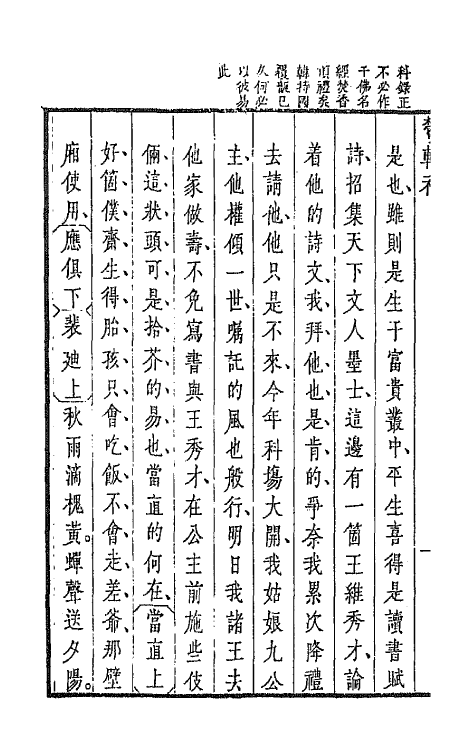 科錄正
不必作
千佛名
經焚香
頂禮矣
韓持國
禮甑已
久何必
以彼易
此
是也、雖則是生于富貴叢中、平生喜得是讀書賦
詩、招集天下文人墨士、這邊有一箇王維秀才、論
着他的詩文、我拜他也是肯的、爭奈我累次降禮
去請他、他只是不來、今年科塲大開、我姑娘九公
主、他權傾一世、囑託的風也般行、明日我諸王去
他家做壽、不免寫書與王秀才、在公主前施些伎
倆、這狀頭可是拾芥的易也、當直的何在、〔當直上〕
好箇僕齋、生得胎孩、只會吃飯、不會走差、爺那壁
廂使用、〔應俱下〕〔裴迪上〕秋雨滴槐黃。蟬聲送夕陽。
一